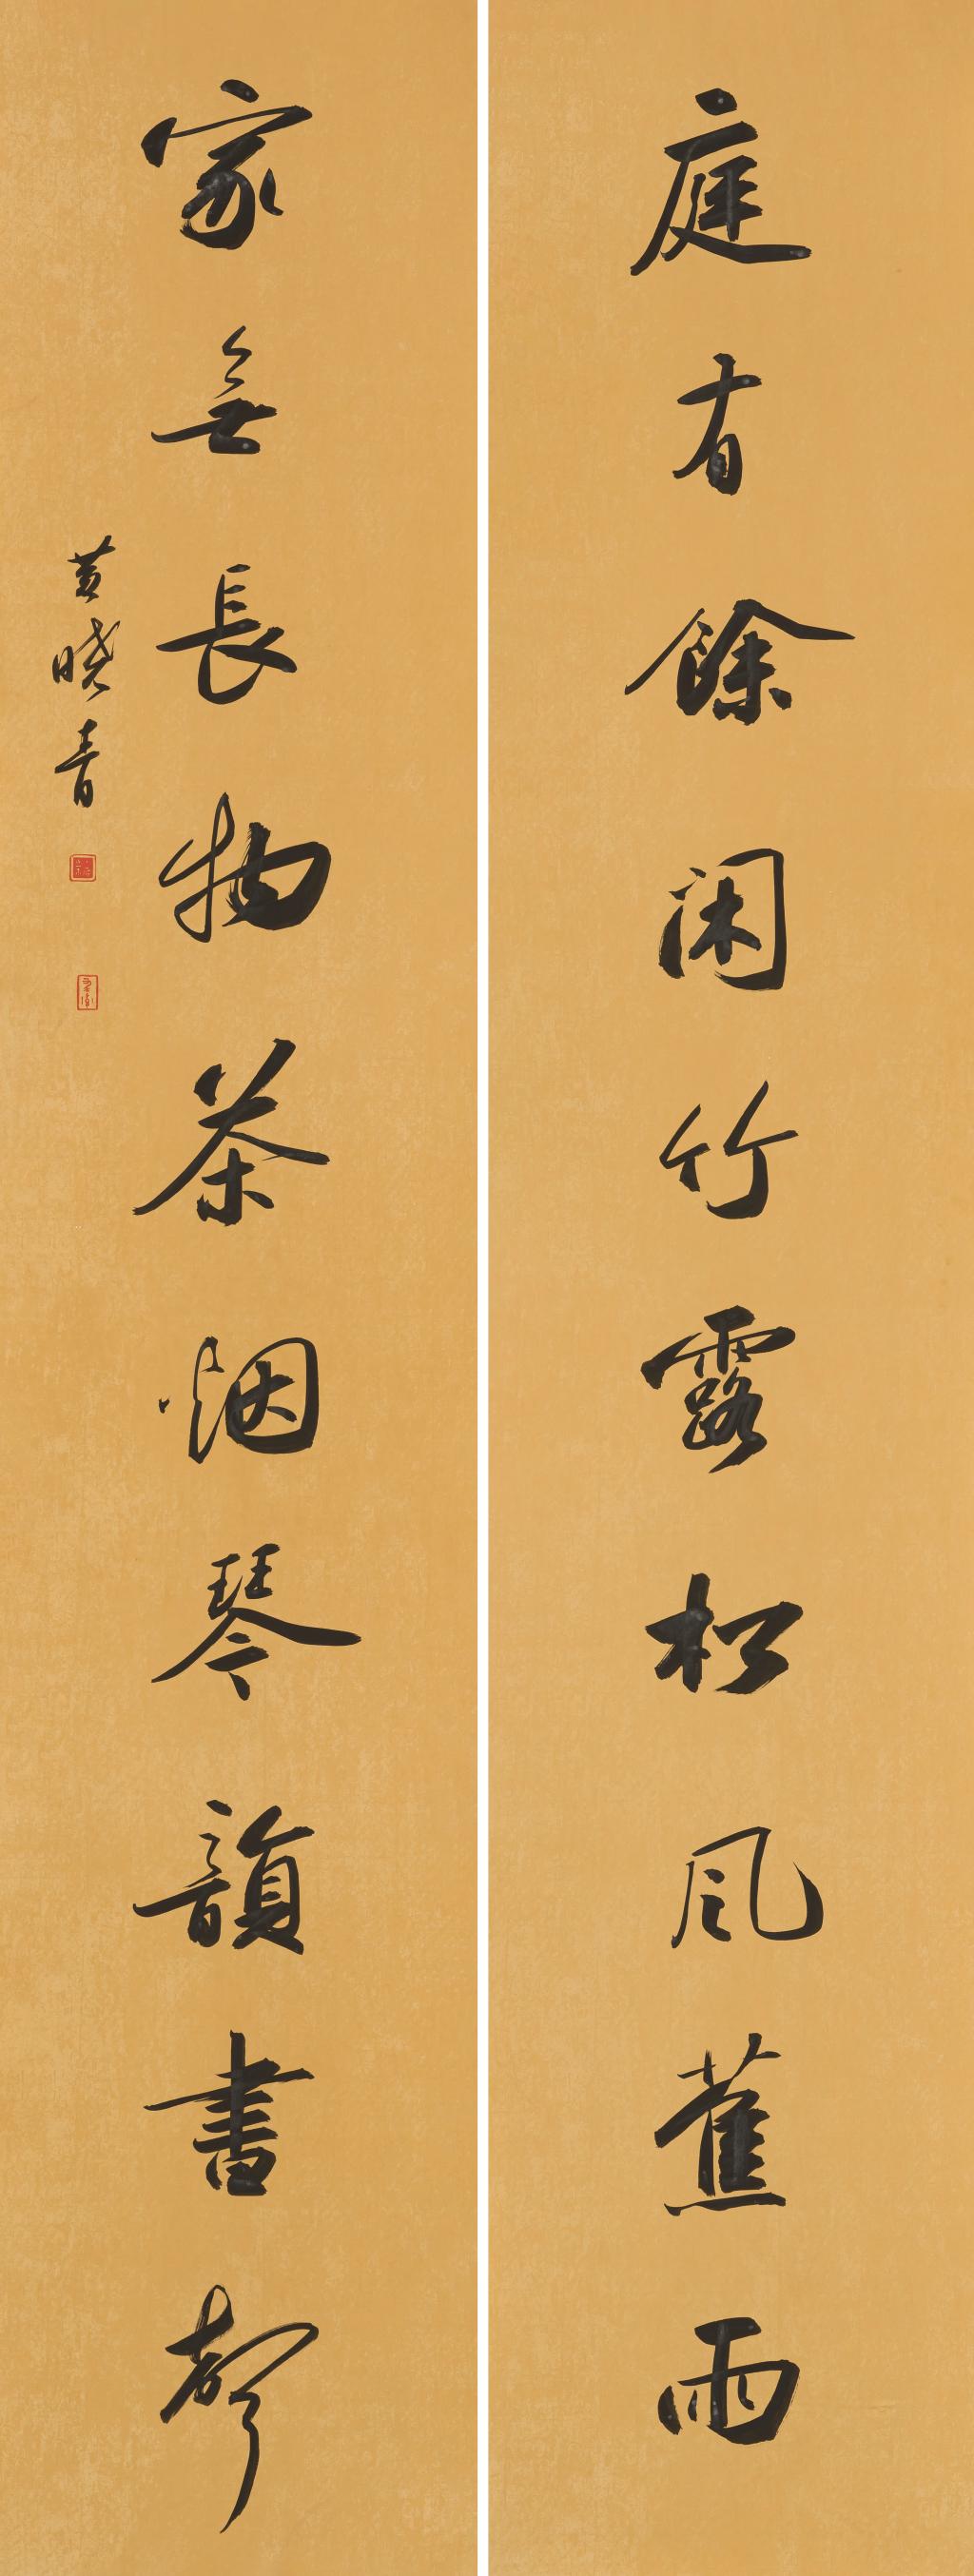 庭有餘闲竹露松风蕉雨
家無長物茶烟琴韻書聲
黄晓青